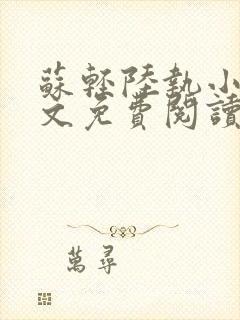 蘇輕陸執小
文免費閱讀
萬尋